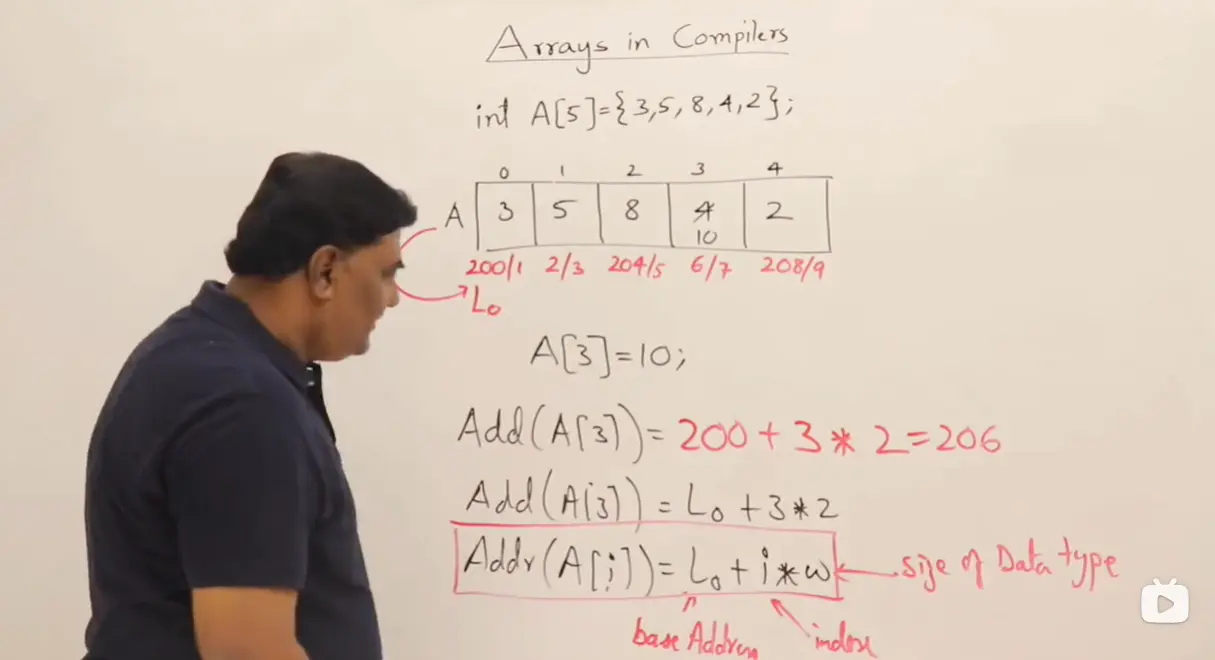 Arrays in Compilers
int A[5]={3,5,8,4,2};
0 1 2 3 4
A 3 5 8 4 2
10
200/1 2/3 204/5 6/7 208/9
L₀
A[3]=10;
Add(A[3])= 200+3*2=206
Add(A[3])= L₀+3*2
Addr(A[i])= L₀+i*w size of Data type
base Address index